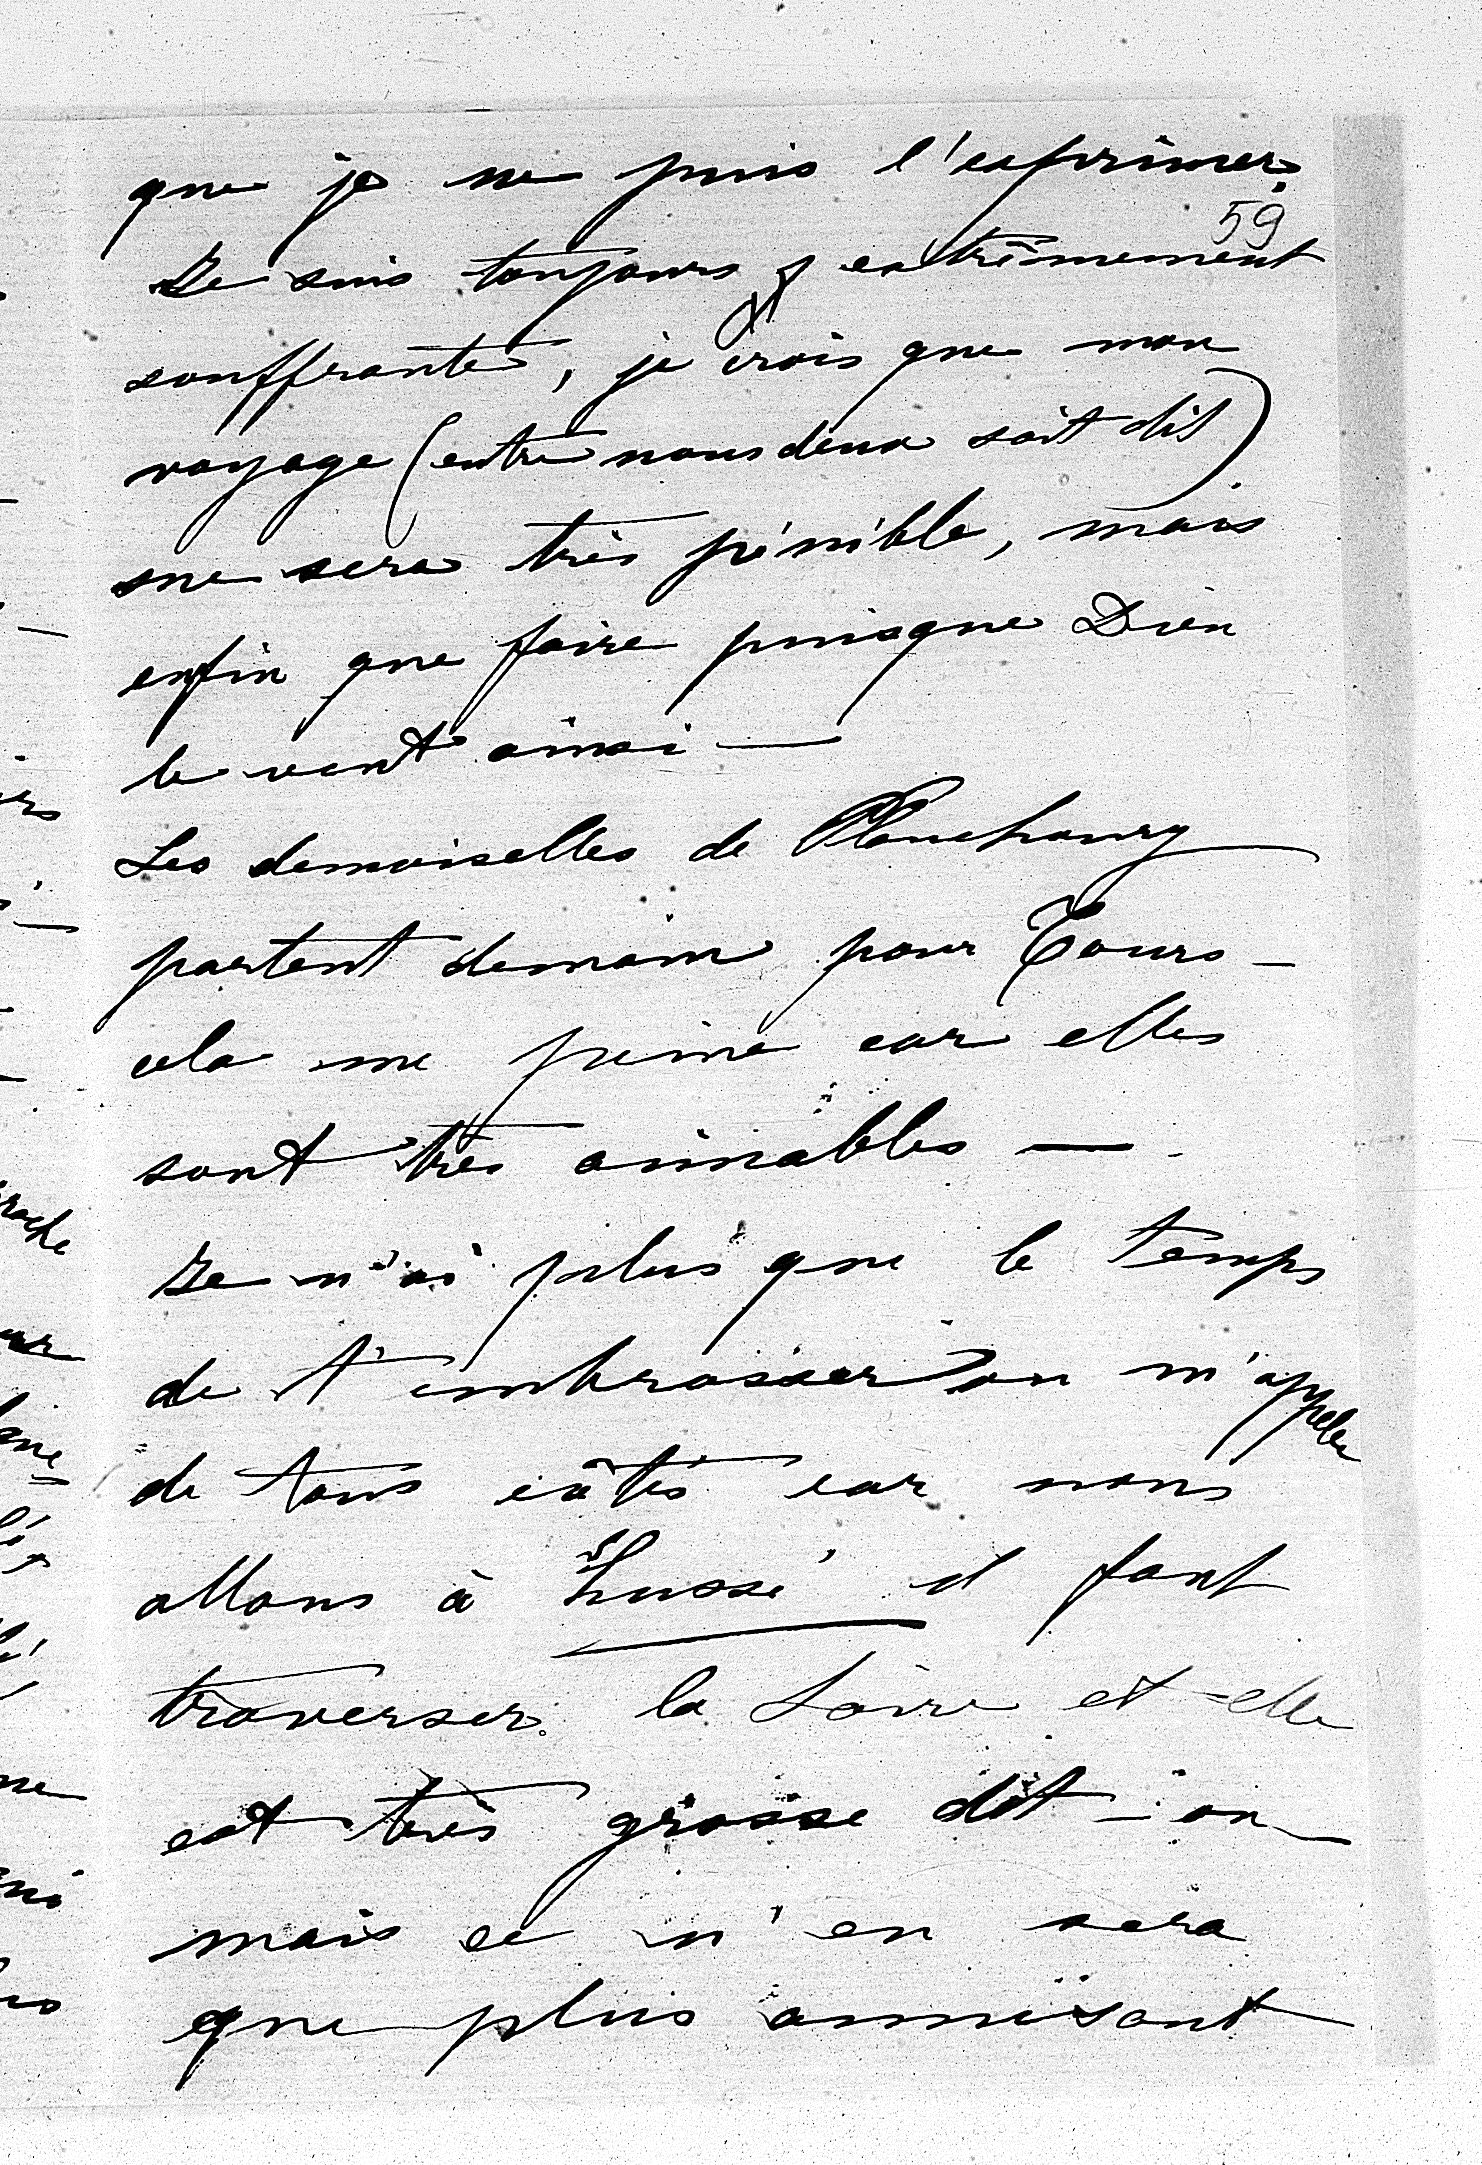 que je ne puis l'exprimer.
59
Je suis toujours extrêmement
souffrante, je crois que mon
voyage (entre nous deux soit dit)
me sera très pénible, mais
enfin que faire puisque Dieu
le veut ainsi —
Les demoiselles de Planchoury
partent demain pour Tours —
cela me peine car elles
sont très aimables —
Je n'ai plus que le temps
de t'embrasser on m'appelle
de tous côtés car nous
allons à Sussé il faut
traverser la Loire et elle
est très grosse dit-on
mais ce n'en sera
que plus amusant